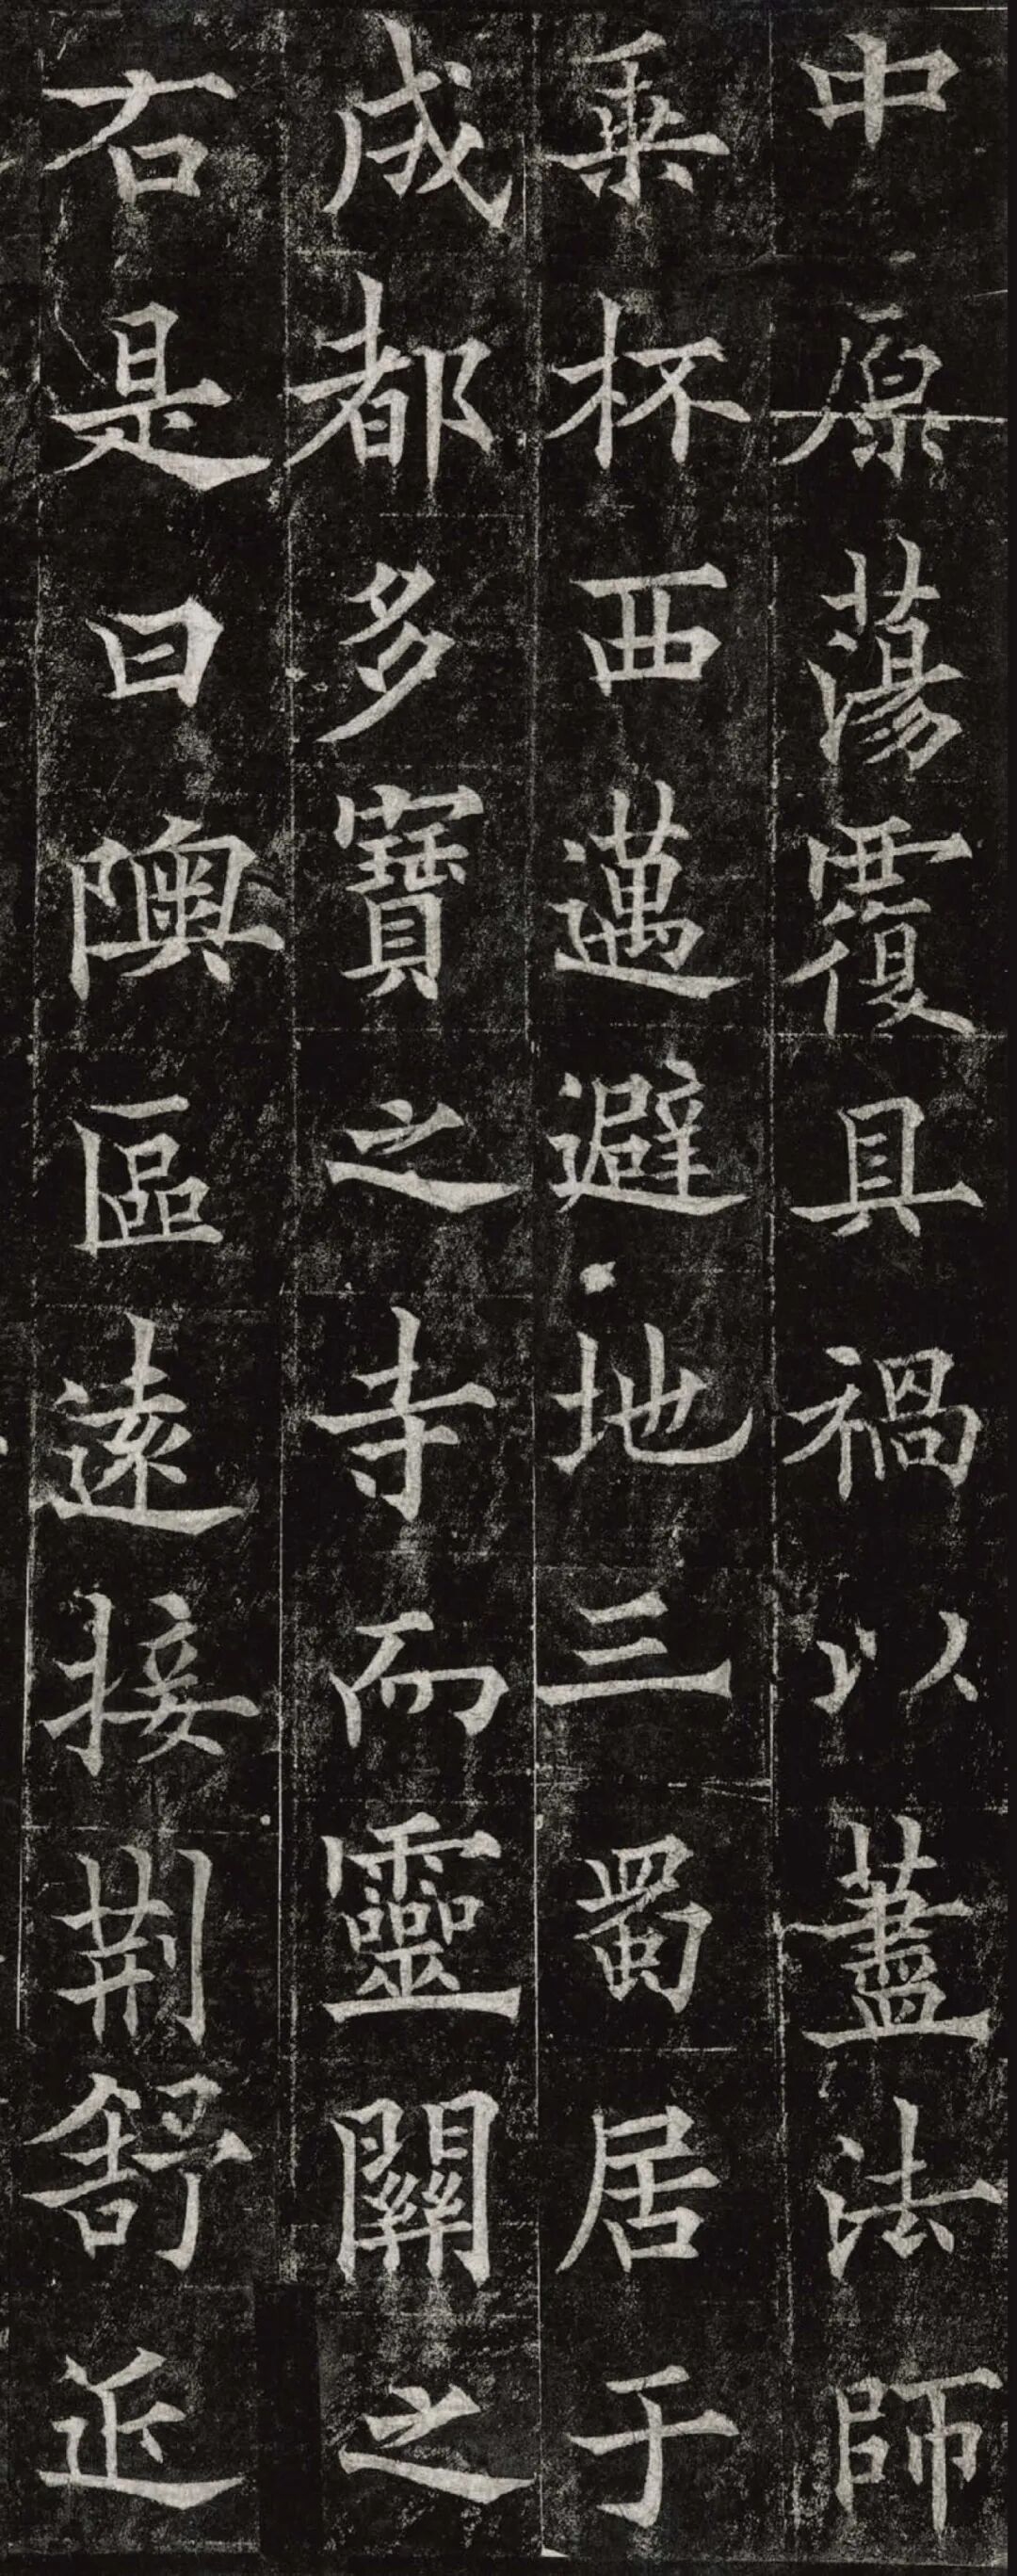 中原蕩覆具禍以蓋法師
乗杯西邁避地三蜀居于
成都多寶之寺而靈關之
右是曰隩區遠接荆舒近